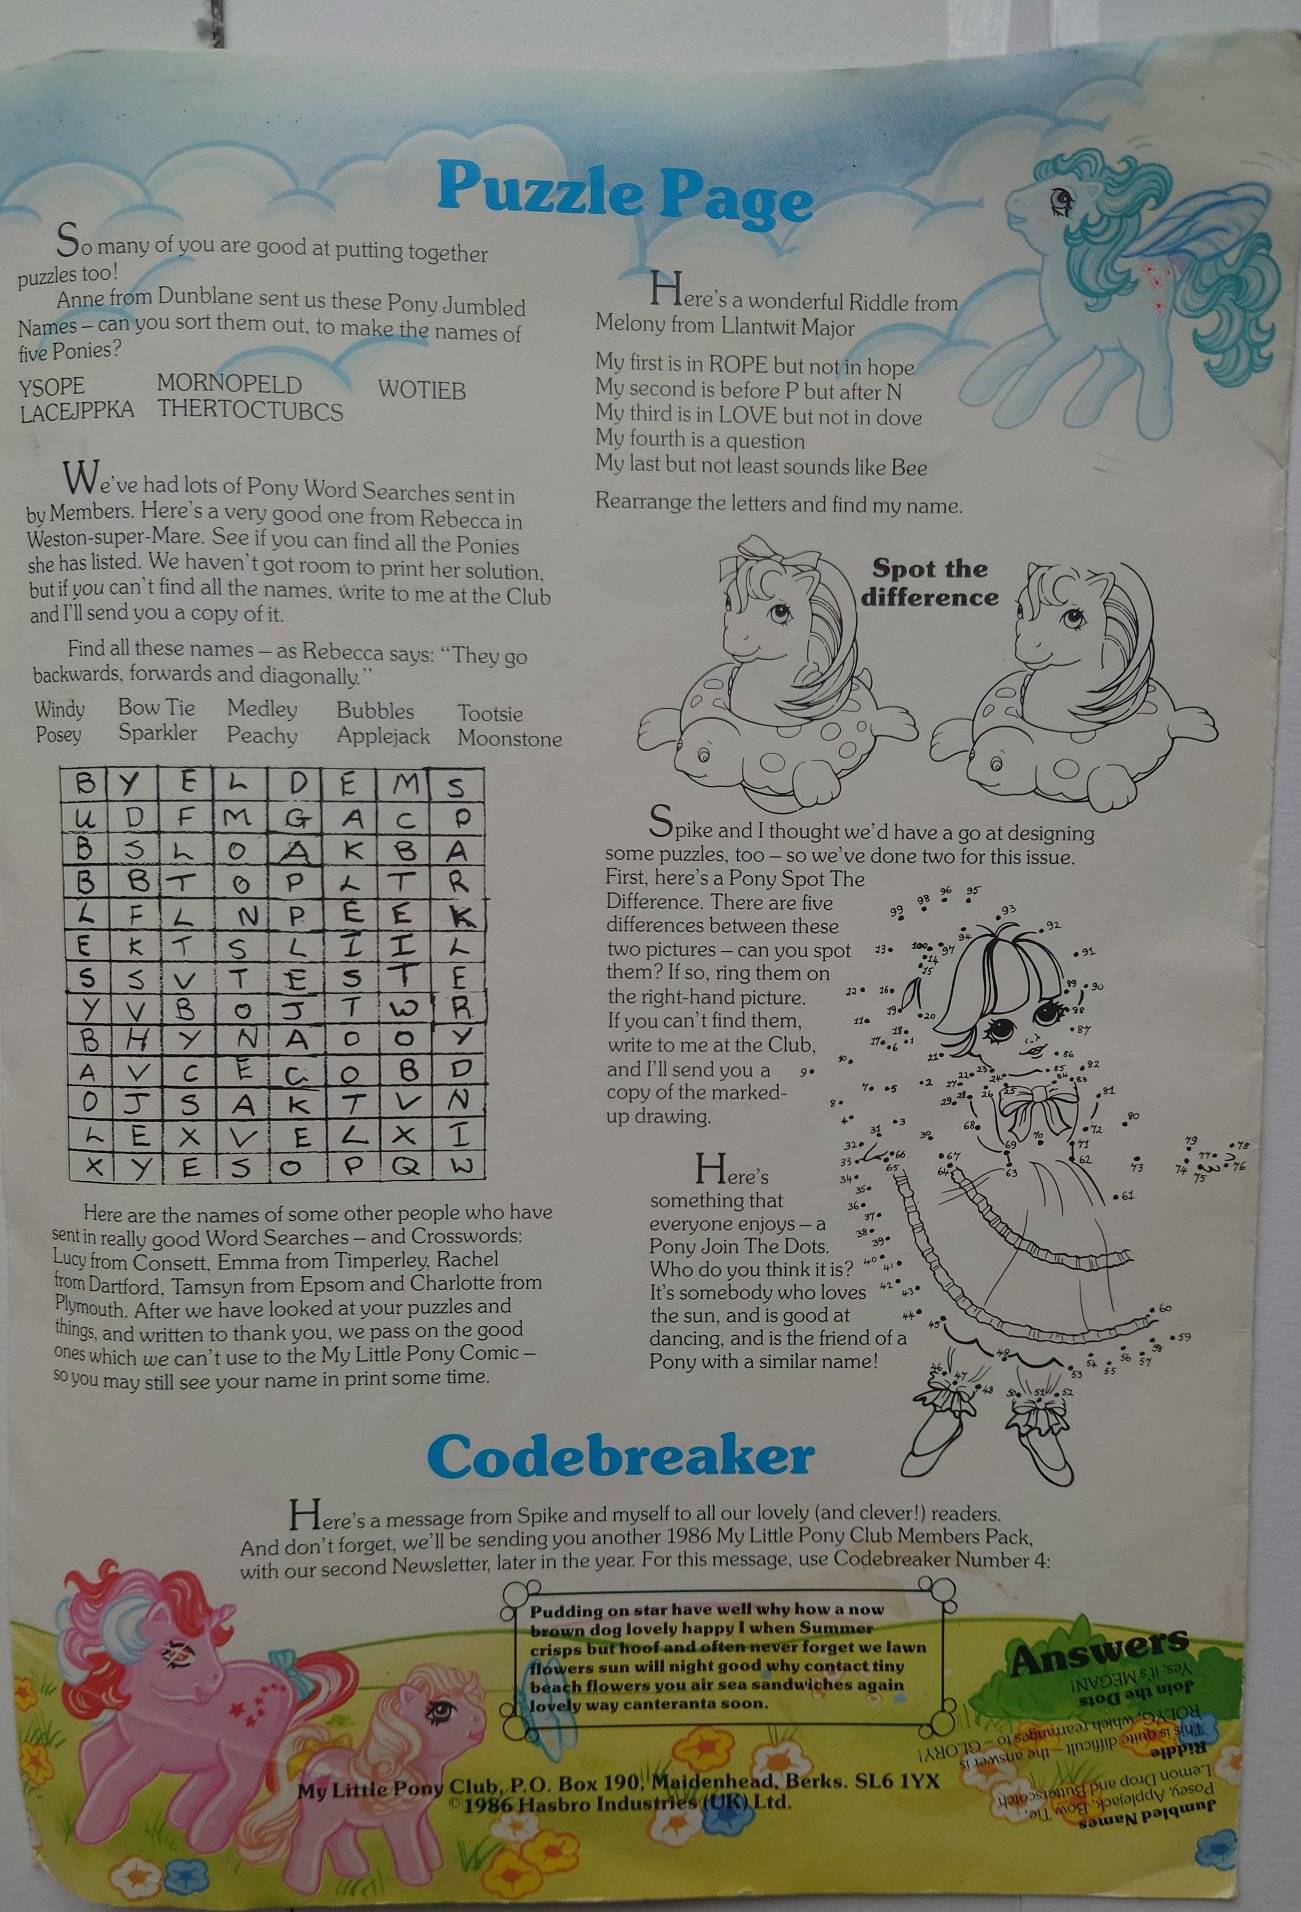 Puzzle Page
So many of you are good at putting together
puzzles too!
Anne from Dunblane sent us these Pony Jumbled
Names – can you sort them out, to make the names of
five Ponies?
YSOPE MORNOPELD WOTIEB
LACEJPPKA THERTOCTUBCS
We've had lots of Pony Word Searches sent in
by Members. Here's a very good one from Rebecca in
Weston-super-Mare. See if you can find all the Ponies
she has listed. We haven't got room to print her solution,
but if you can't find all the names, write to me at the Club
and I'll send you a copy of it.
Find all these names – as Rebecca says: “They go
backwards, forwards and diagonally.”
Windy Bow Tie Medley Bubbles Tootsie
Posey Sparkler Peachy Applejack Moonstone
B Y E L D E M S
U D F M G A C P
B S L O A K B A
B B T O P L T R
L F L N P E E K
E K T S L I I L
S S V T E S T E
Y V B O J T W R
B H Y N A O O Y
A V C E C O B D
O J S A K T V N
L E X V E L X I
X Y E S O P Q W
Here are the names of some other people who have
sent in really good Word Searches – and Crosswords:
Lucy from Consett, Emma from Timperley, Rachel
from Dartford, Tamsyn from Epsom and Charlotte from
Plymouth. After we have looked at your puzzles and
things, and written to thank you, we pass on the good
ones which we can't use to the My Little Pony Comic –
so you may still see your name in print some time.
Here's a wonderful Riddle from
Melony from Llantwit Major
My first is in ROPE but not in hope
My second is before P but after N
My third is in LOVE but not in dove
My fourth is a question
My last but not least sounds like Bee
Rearrange the letters and find my name.
Spot the
difference
Spike and I thought we'd have a go at designing
some puzzles, too – so we've done two for this issue.
First, here's a Pony Spot The
Difference. There are five
differences between these
two pictures – can you spot
them? If so, ring them on
the right-hand picture.
If you can't find them,
write to me at the Club,
and I'll send you a
copy of the marked-
up drawing.
Here's
something that
everyone enjoys – a
Pony Join The Dots.
Who do you think it is?
It's somebody who loves
the sun, and is good at
dancing, and is the friend of a
Pony with a similar name!
Codebreaker
Here's a message from Spike and myself to all our lovely (and clever!) readers.
And don't forget, we'll be sending you another 1986 My Little Pony Club Members Pack,
with our second Newsletter, later in the year. For this message, use Codebreaker Number 4:
Pudding on star have well why how a now
brown dog lovely happy I when Summer
crisps but hoof and often never forget we lawn
flowers sun will night good why contact tiny
beach flowers you air sea sandwiches again
lovely way canteranta soon.
My Little Pony Club, P.O. Box 190, Maidenhead, Berks. SL6 1YX
© 1986 Hasbro Industries (UK) Ltd.
Answers
Jumbled Names
Posey, Applejack, Bow Tie,
Lemon Drop and Butterscotch
Riddle
This is quite difficult – the answer is
ROLYG, which rearranges to – GLORY!
Join the Dots
Yes, it's MEGAN!